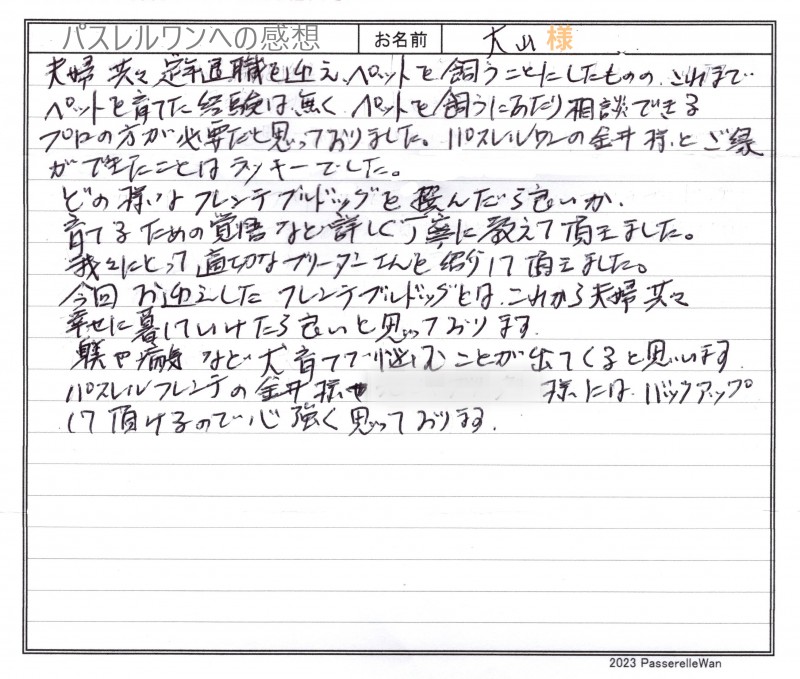 パスレルワンへの感想 お名前 大山 様
夫婦共々定年退職を迎え、ペットを飼うことにしたものの、これまで
ペットを育てた経験は無く ペットを飼うにあたり相談できる
プロの方が必要だと思っておりました。パスレルワンの金井様とご縁
ができたことはラッキーでした。
どの様なフレンチブルドッグを選んだら良いか、
育てるための覚悟など詳しく丁寧に教えて頂きました。
我々にとって適切なブリーダーさんを紹介して頂きました。
今回お迎えしたフレンチブルドッグとは、これから夫婦共々
幸せに暮していけたら良いと思っております。
躾や病気など犬育てで悩むことが出てくると思います。
パスレルフレンチの金井様や 様には、バックアップ
して頂けるので心強く思っております。
2023 PasserelleWan